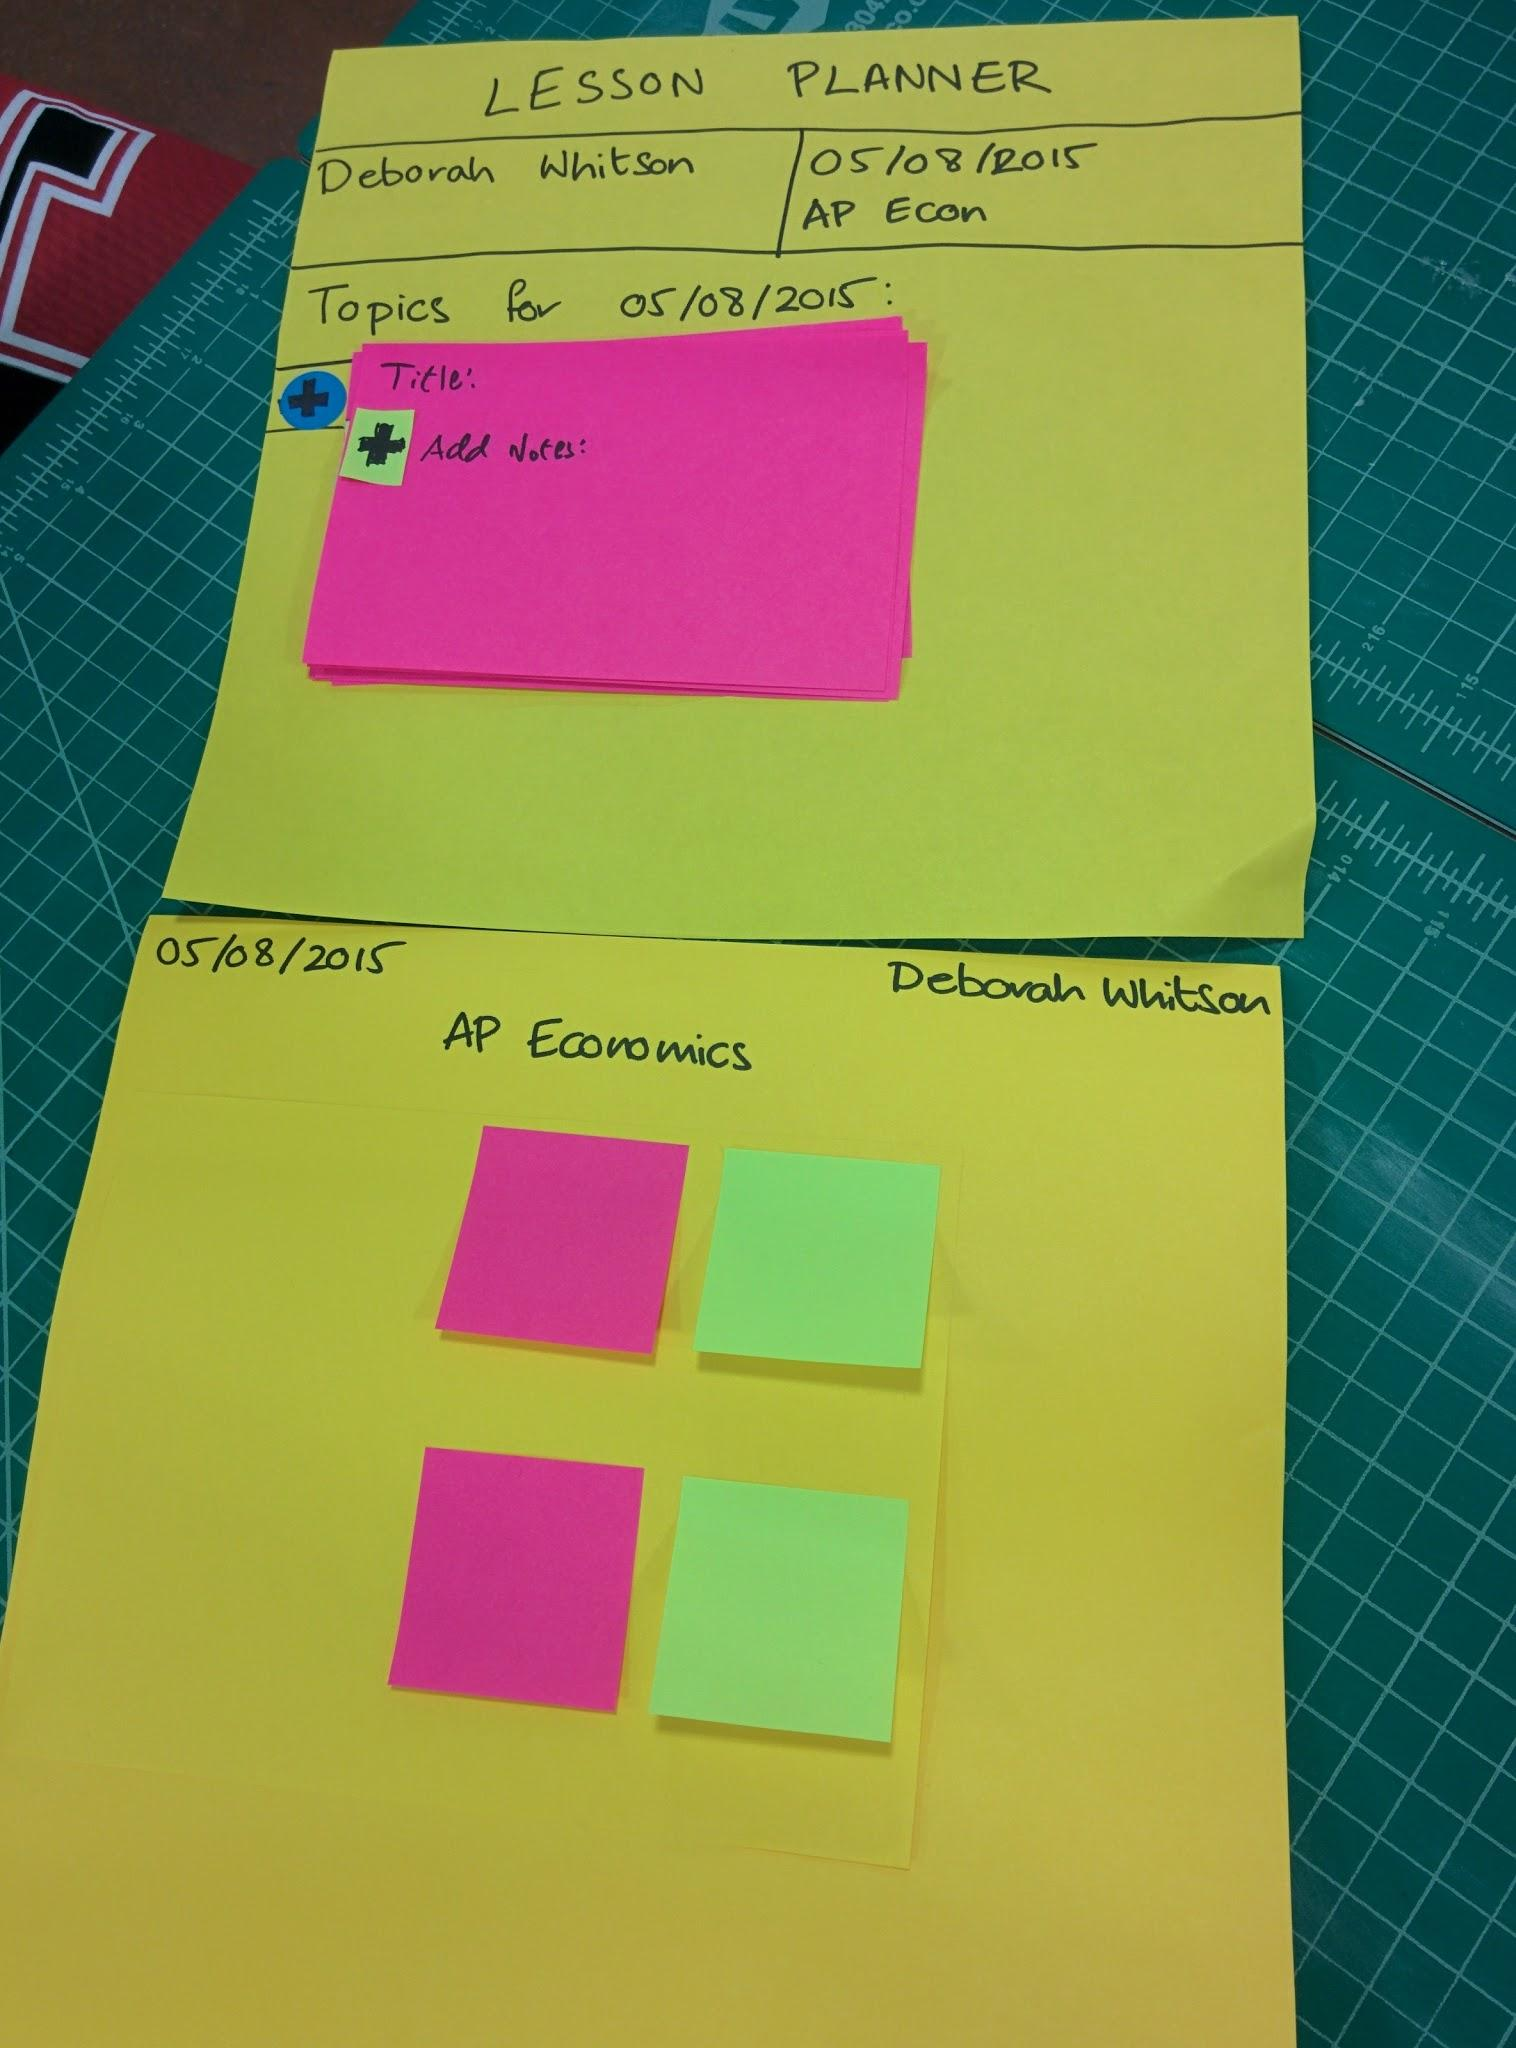 LESSON PLANNER
Deborah Whitson
05/08/2015
AP Econ
Topics for 05/08/2015:
Title:
Add Notes:
05/08/2015
Deborah Whitson
AP Economics